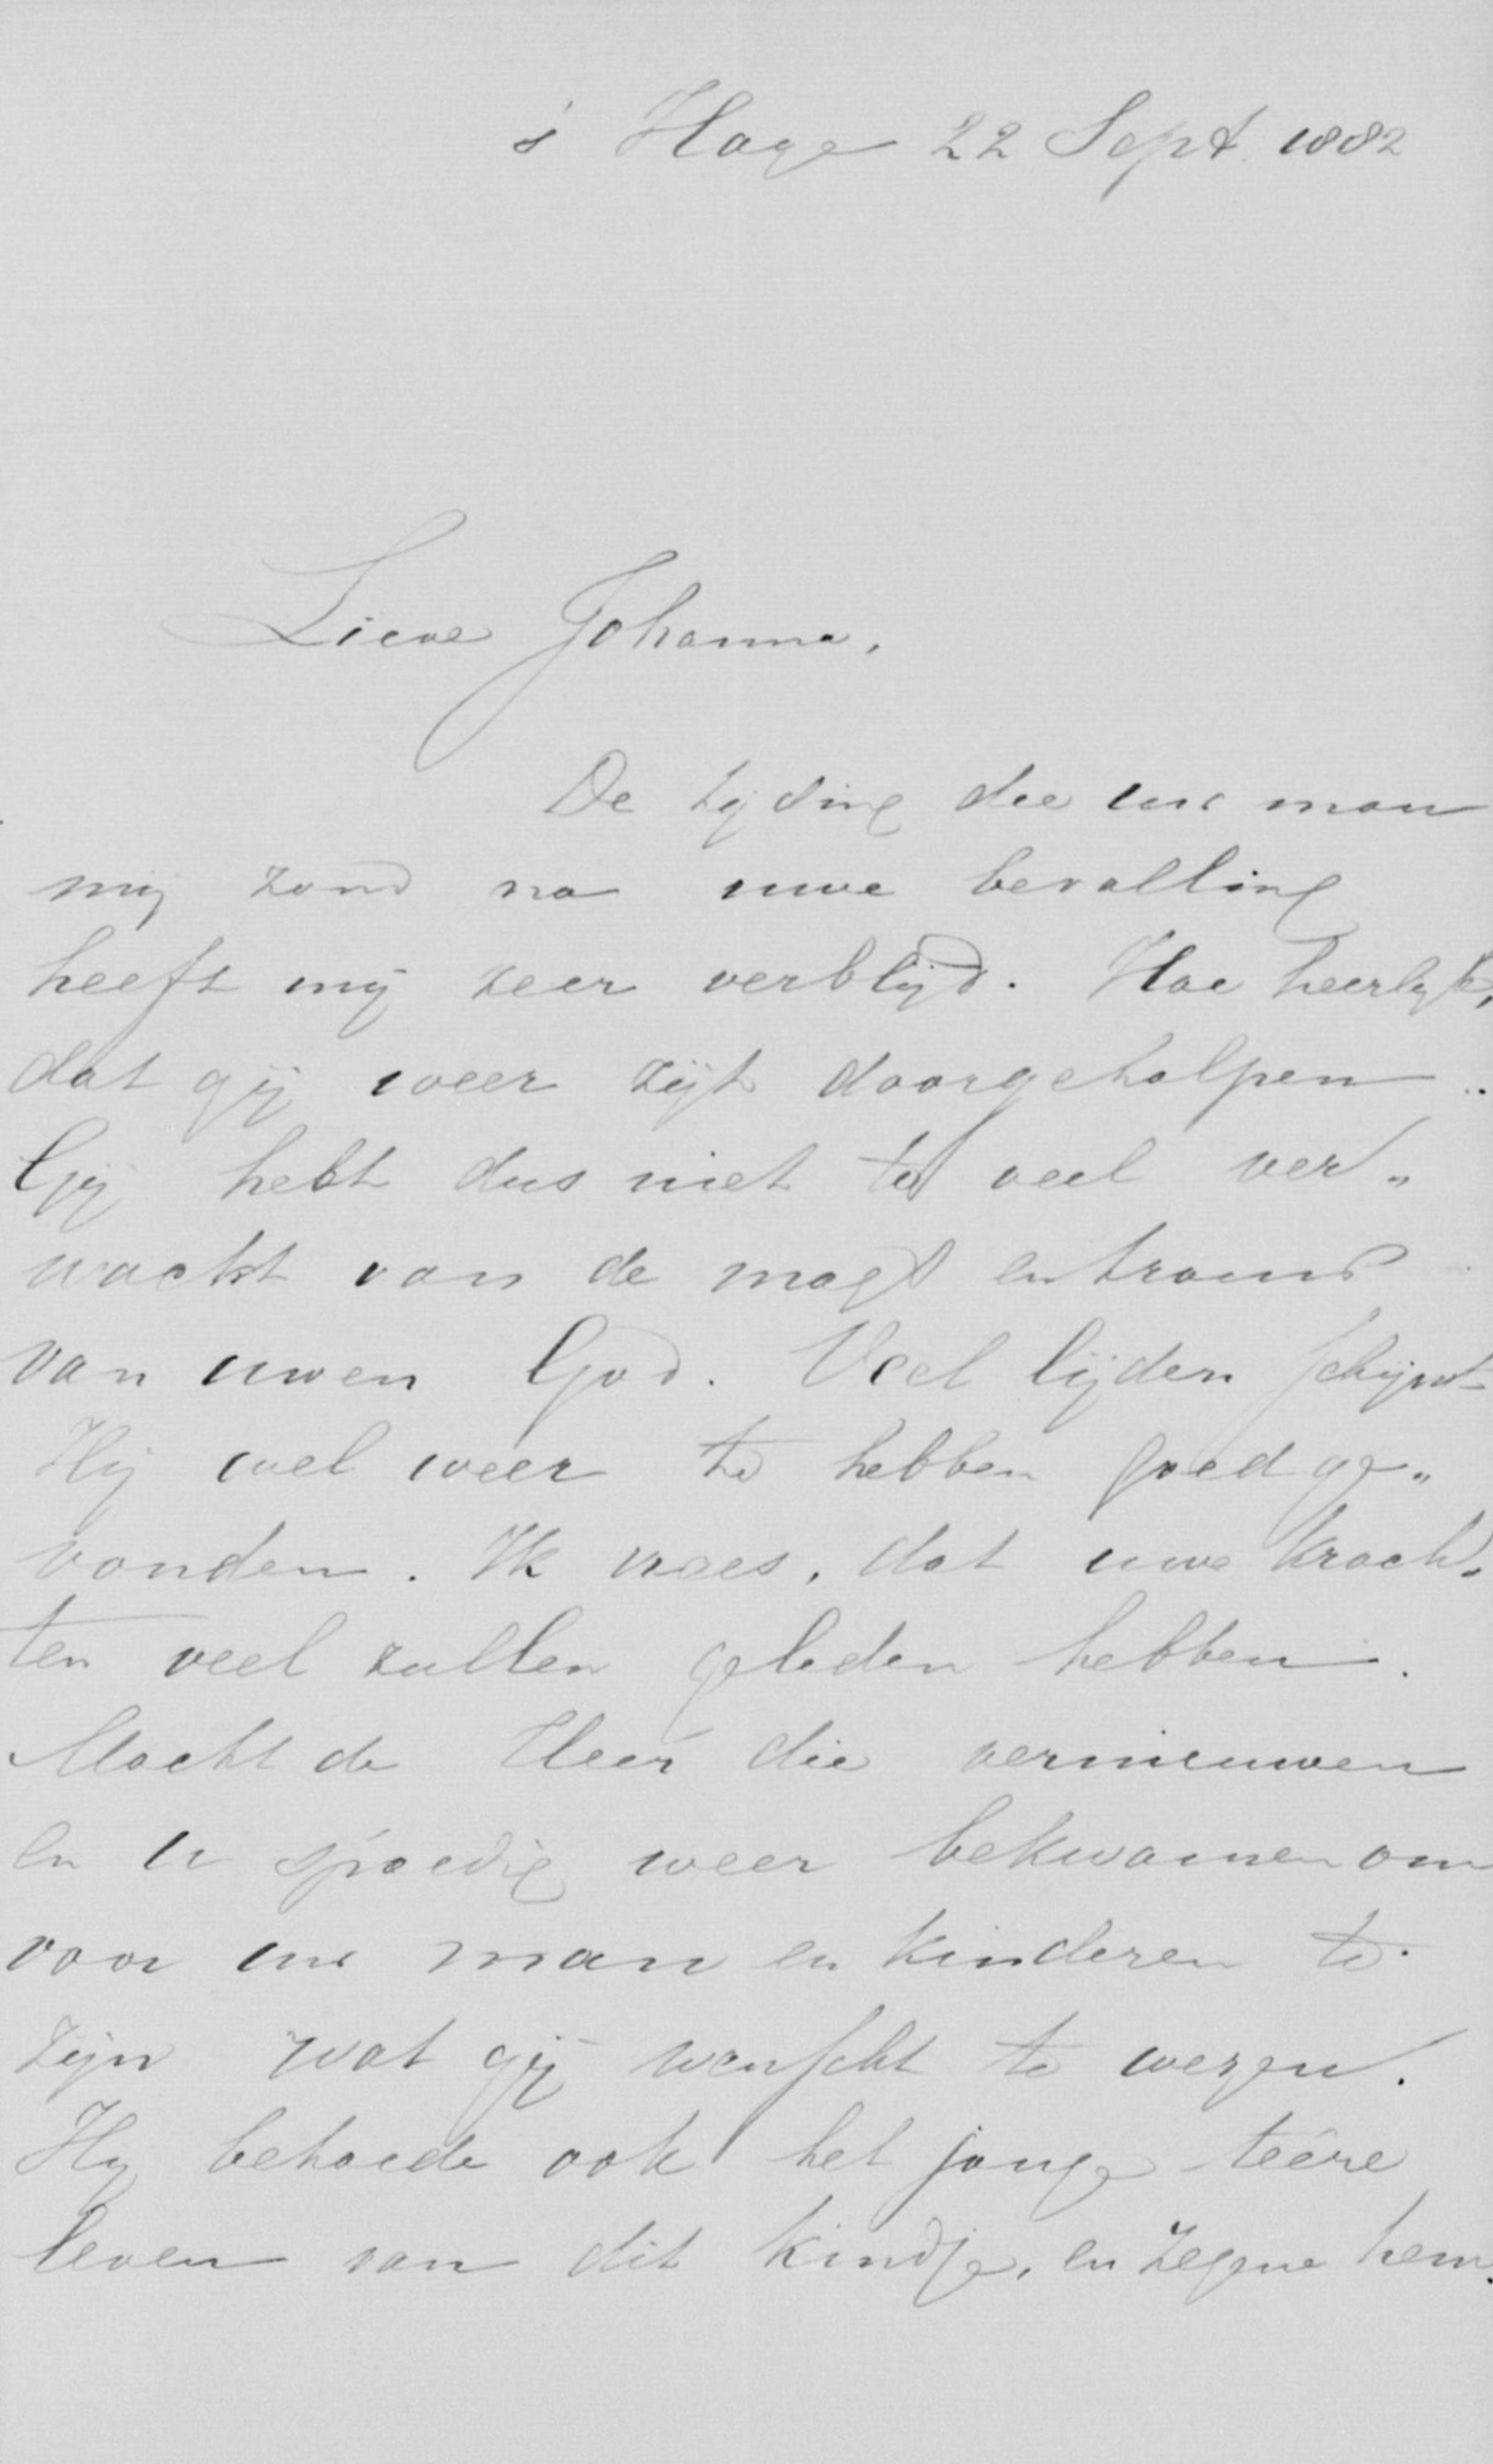 's Hage 22 Sept. 1882
Lieve Johanna,
De tijding die uw man
mij zond na uwe bevalling
heeft mij zeer verblijd. Hoe heerlijk,
dat gij weer zijt doorgeholpen.
Gij hebt dus niet te veel ver„
wacht van de magt en trouw
van uwen God. Veel lijden schijnt
Hij wel weer te hebben goed ge„
vonden. Ik vrees, dat uwe krach„
ten veel zullen geleden hebben.
Mocht de Heer die vernieuwen
en u spoedig weer bekwamen om
voor uw man en kinderen te
zijn wat gij wenscht te wezen.
Hij behoede ook het jonge teêre
leven van dit kindje, en zegene hem.